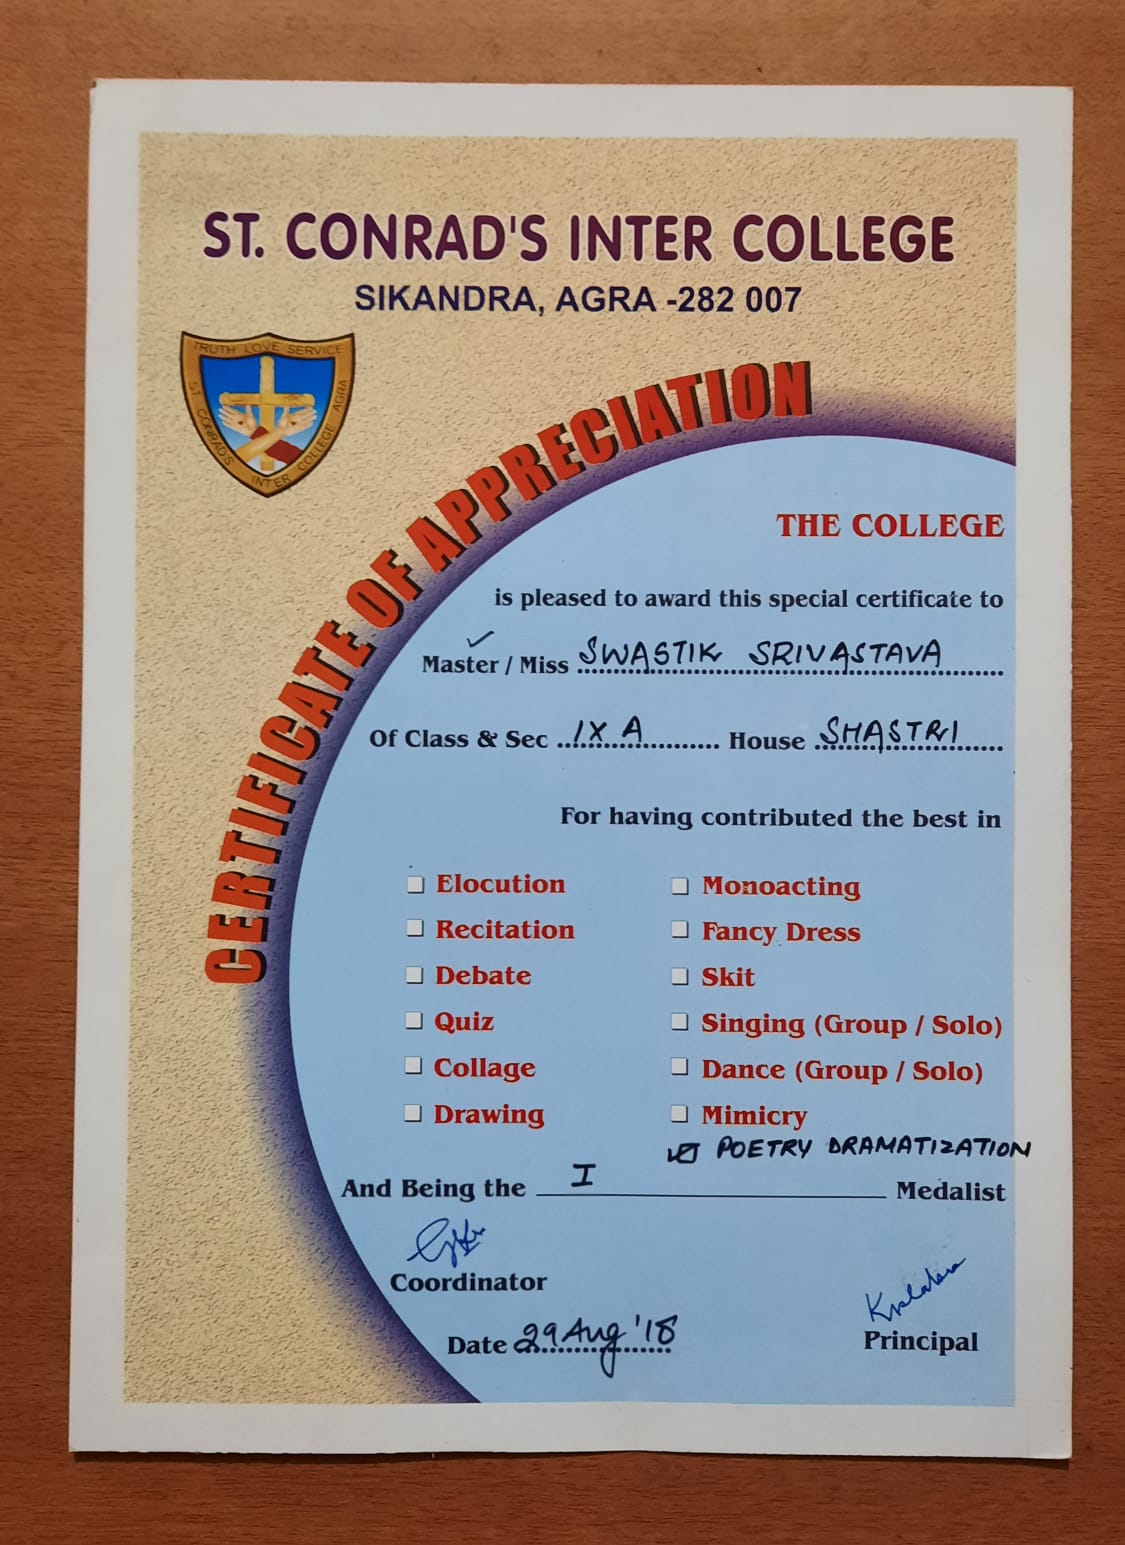 ST. CONRAD'S INTER COLLEGE
SIKANDRA, AGRA -282 007
TRUTH LOVE SERVICE
ST. CONRAD'S INTER COLLEGE AGRA
CERTIFICATE OF APPRECIATION
THE COLLEGE
is pleased to award this special certificate to
Master / Miss SWASTIK SRIVASTAVA
Of Class & Sec IX A House SHASTRI
For having contributed the best in
Elocution
Recitation
Debate
Quiz
Collage
Drawing
Monoacting
Fancy Dress
Skit
Singing (Group / Solo)
Dance (Group / Solo)
Mimicry
POETRY DRAMATIZATION
And Being the I Medalist
Coordinator
Date 29 Aug '18
Principal